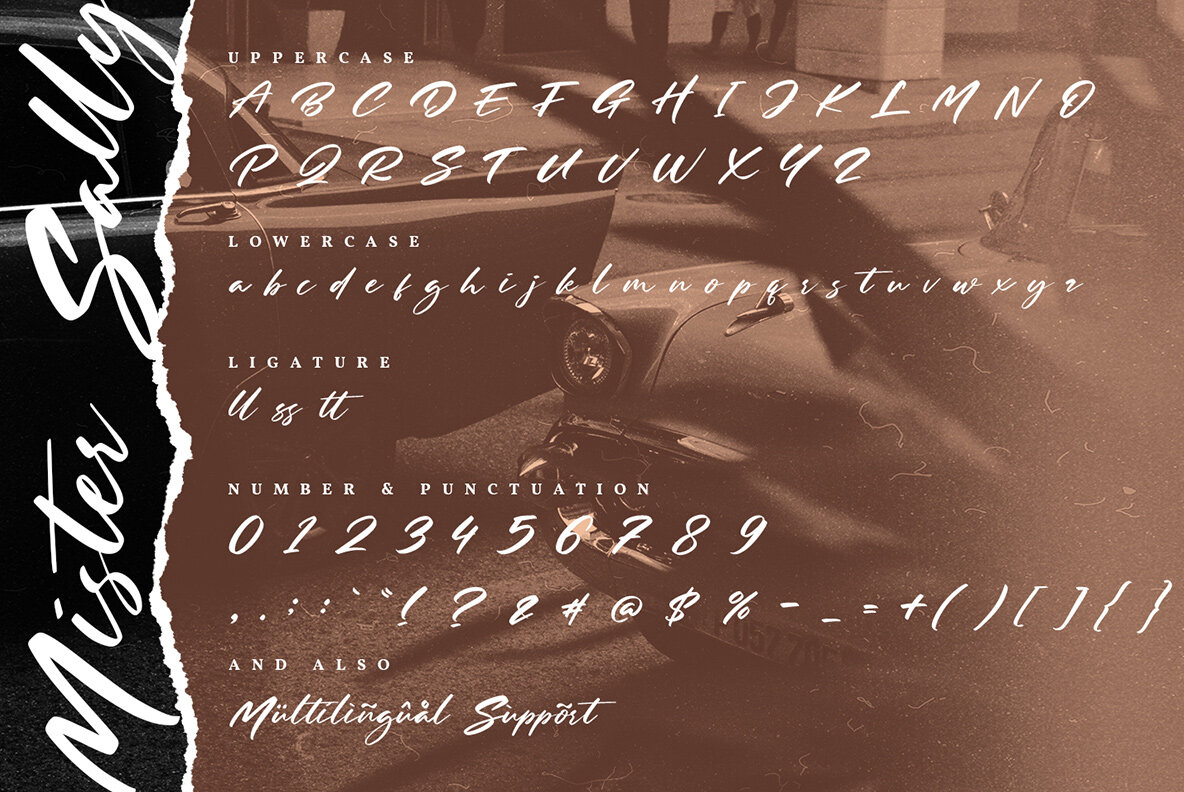 Mister Sally
UPPERCASE
A B C D E F G H I J K L M N O
P Q R S T U V W X Y Z
LOWERCASE
a b c d e f g h i j k l m n o p q r s t u v w x y z
LIGATURE
ll ss tt
NUMBER & PUNCTUATION
0 1 2 3 4 5 6 7 8 9
, . ; : ` “ ! ? & # @ $ % - _ = + ( ) [ ] { }
AND ALSO
Mültílìñgûål Sùppõrt